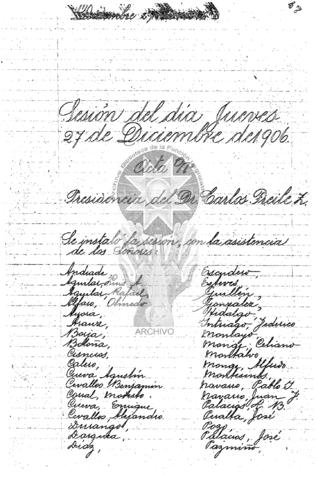 Sesión del día Jueves
27 de Diciembre de 1906.
Acta 97
Presidencia del Dr Carlos Freile Z.
Se instaló la sesión, con la asistencia
de los Señores:
Andrade
Aguilar, Luis A.
Aguilar, Rafael
Alfaro, Olmedo
Ayora,
Arauz,
Borja,
Boloña,
Cisneros,
Calero,
Cueva Agustín
Cevallos Benjamín
Coral, Modesto
Cueva, Enrique
Cevallos Alejandro
Durango,
Díaz,
Escudero,
Esteves,
Guillén,
González,
Hidalgo,
Intriago, Federico
Montayo
Monge, Celiano
Montalvo,
Monge, Alfredo.
Montesinos,
Navarro, Pablo I.
Navarro, Juan F.
Palacios, L. B.
Peralta, José
Pozo
Palacios, José
Pazmiño.
ARCHIVO